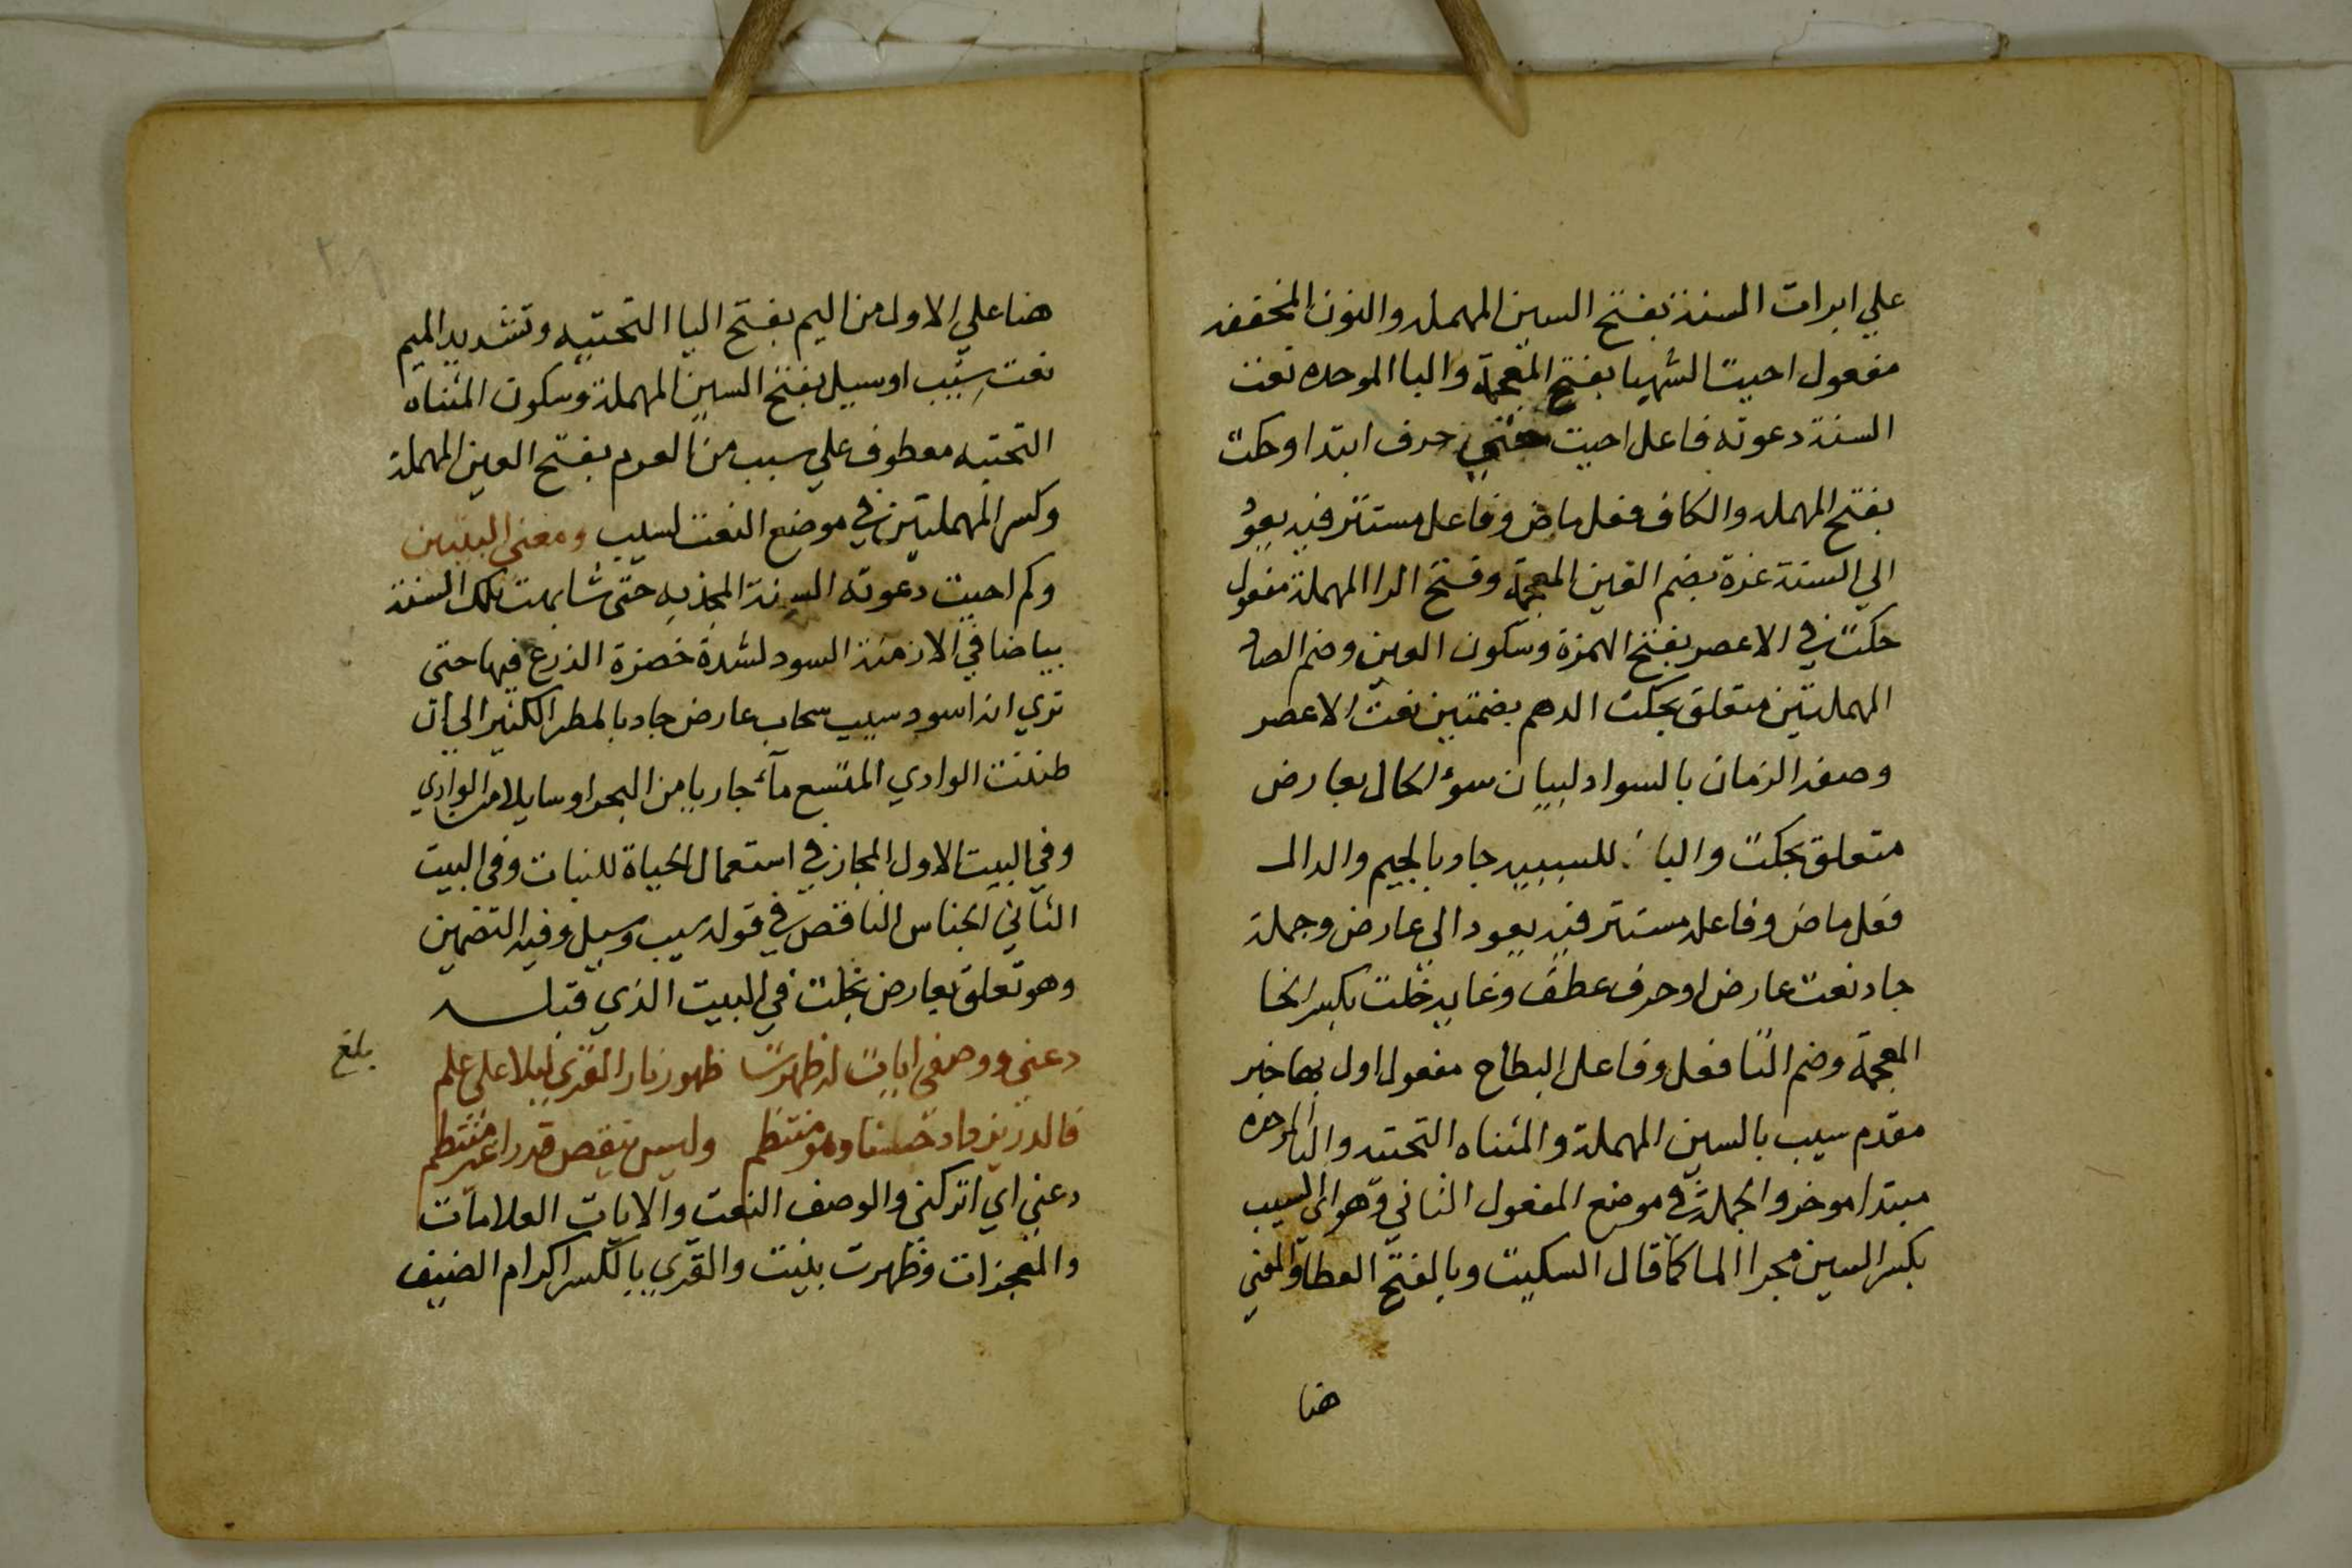 علي ابرات السنة بفتح السين المهمله والنون المخففه
مفعول احيت الشهبا بفتح المعجمة والبا الموحده نعت
السنة دعوته فاعل احيت حتي حرف ابتدا وحكت
بفتح المهمله والكاف فعل ماض وفاعل مستتر فيه يعود
الي السنة غرة بضم الغين المعجمة وفتح الرا المهملة مفعول
حكت في الاعصر بفتح الهمزة وسكون العين وضم الصاد
المهملتين متعلق بحكت الدهم بضمتين نعت الاعصر
وصف الزمان بالسواد لبيان سوء الحال بعارض
متعلق بحكت والبا للسببيه جاد بالجيم والدال
فعل ماض وفاعله مستتر فيه يعود الي عارض وجملة
جاد نعت عارض او حرف عطف وغايه خلت بكسر الخا
المعجمة وضم التا فعل وفاعل البطاح مفعول اول بها خبر
مقدم سيب بالسين المهملة والمثناه التحتيه والبا الموحده
مبتدا موخر والجملة في موضع المفعول الثاني وهو اي السيب
بكسر السين مجرا الما كما قال السكيت وبالفتح العطا والمعني
هنا
هنا علي الاول من اليم بفتح اليا التحتيه وتشديد الميم
نعت سيب او سيل بفتح السين المهملة وسكون المثناه
التحتيه معطوف علي سيب من العرم بفتح العين المهملة
وكسر المهملتين في موضع النعت لسيب ومعني البيتين
وكم احيت دعوته السنة المجذبه حتى شابهت تلك السنة
بياضا في الازمنة السود لشدة خضرة الزرع فيها حتى
تري انه اسود سيب سحاب عارض جاد بالمطر الكثير الي ان
ظننت الوادي المتسع مآء جاريا من البحر او سايلا من الوادي
وفي البيت الاول المجاز في استعمال الحياة للنبات وفي البيت
الثاني الجناس الناقص في قوله سيب وسيل وفيه التضمين
وهو تعلق بعارض بحكت في البيت الذي قبله
دعني ووصفي ايات له ظهرت ظهور نار القري ليلا علي علم
بلغ
فالدر يزداد حسنا وهو منتظم وليس ينقص قدرا غير منتظم
دعني اي اتركني والوصف النعت والايات العلامات
والمعجزات وظهرت بينت والقري بالكسر اكرام الضيف